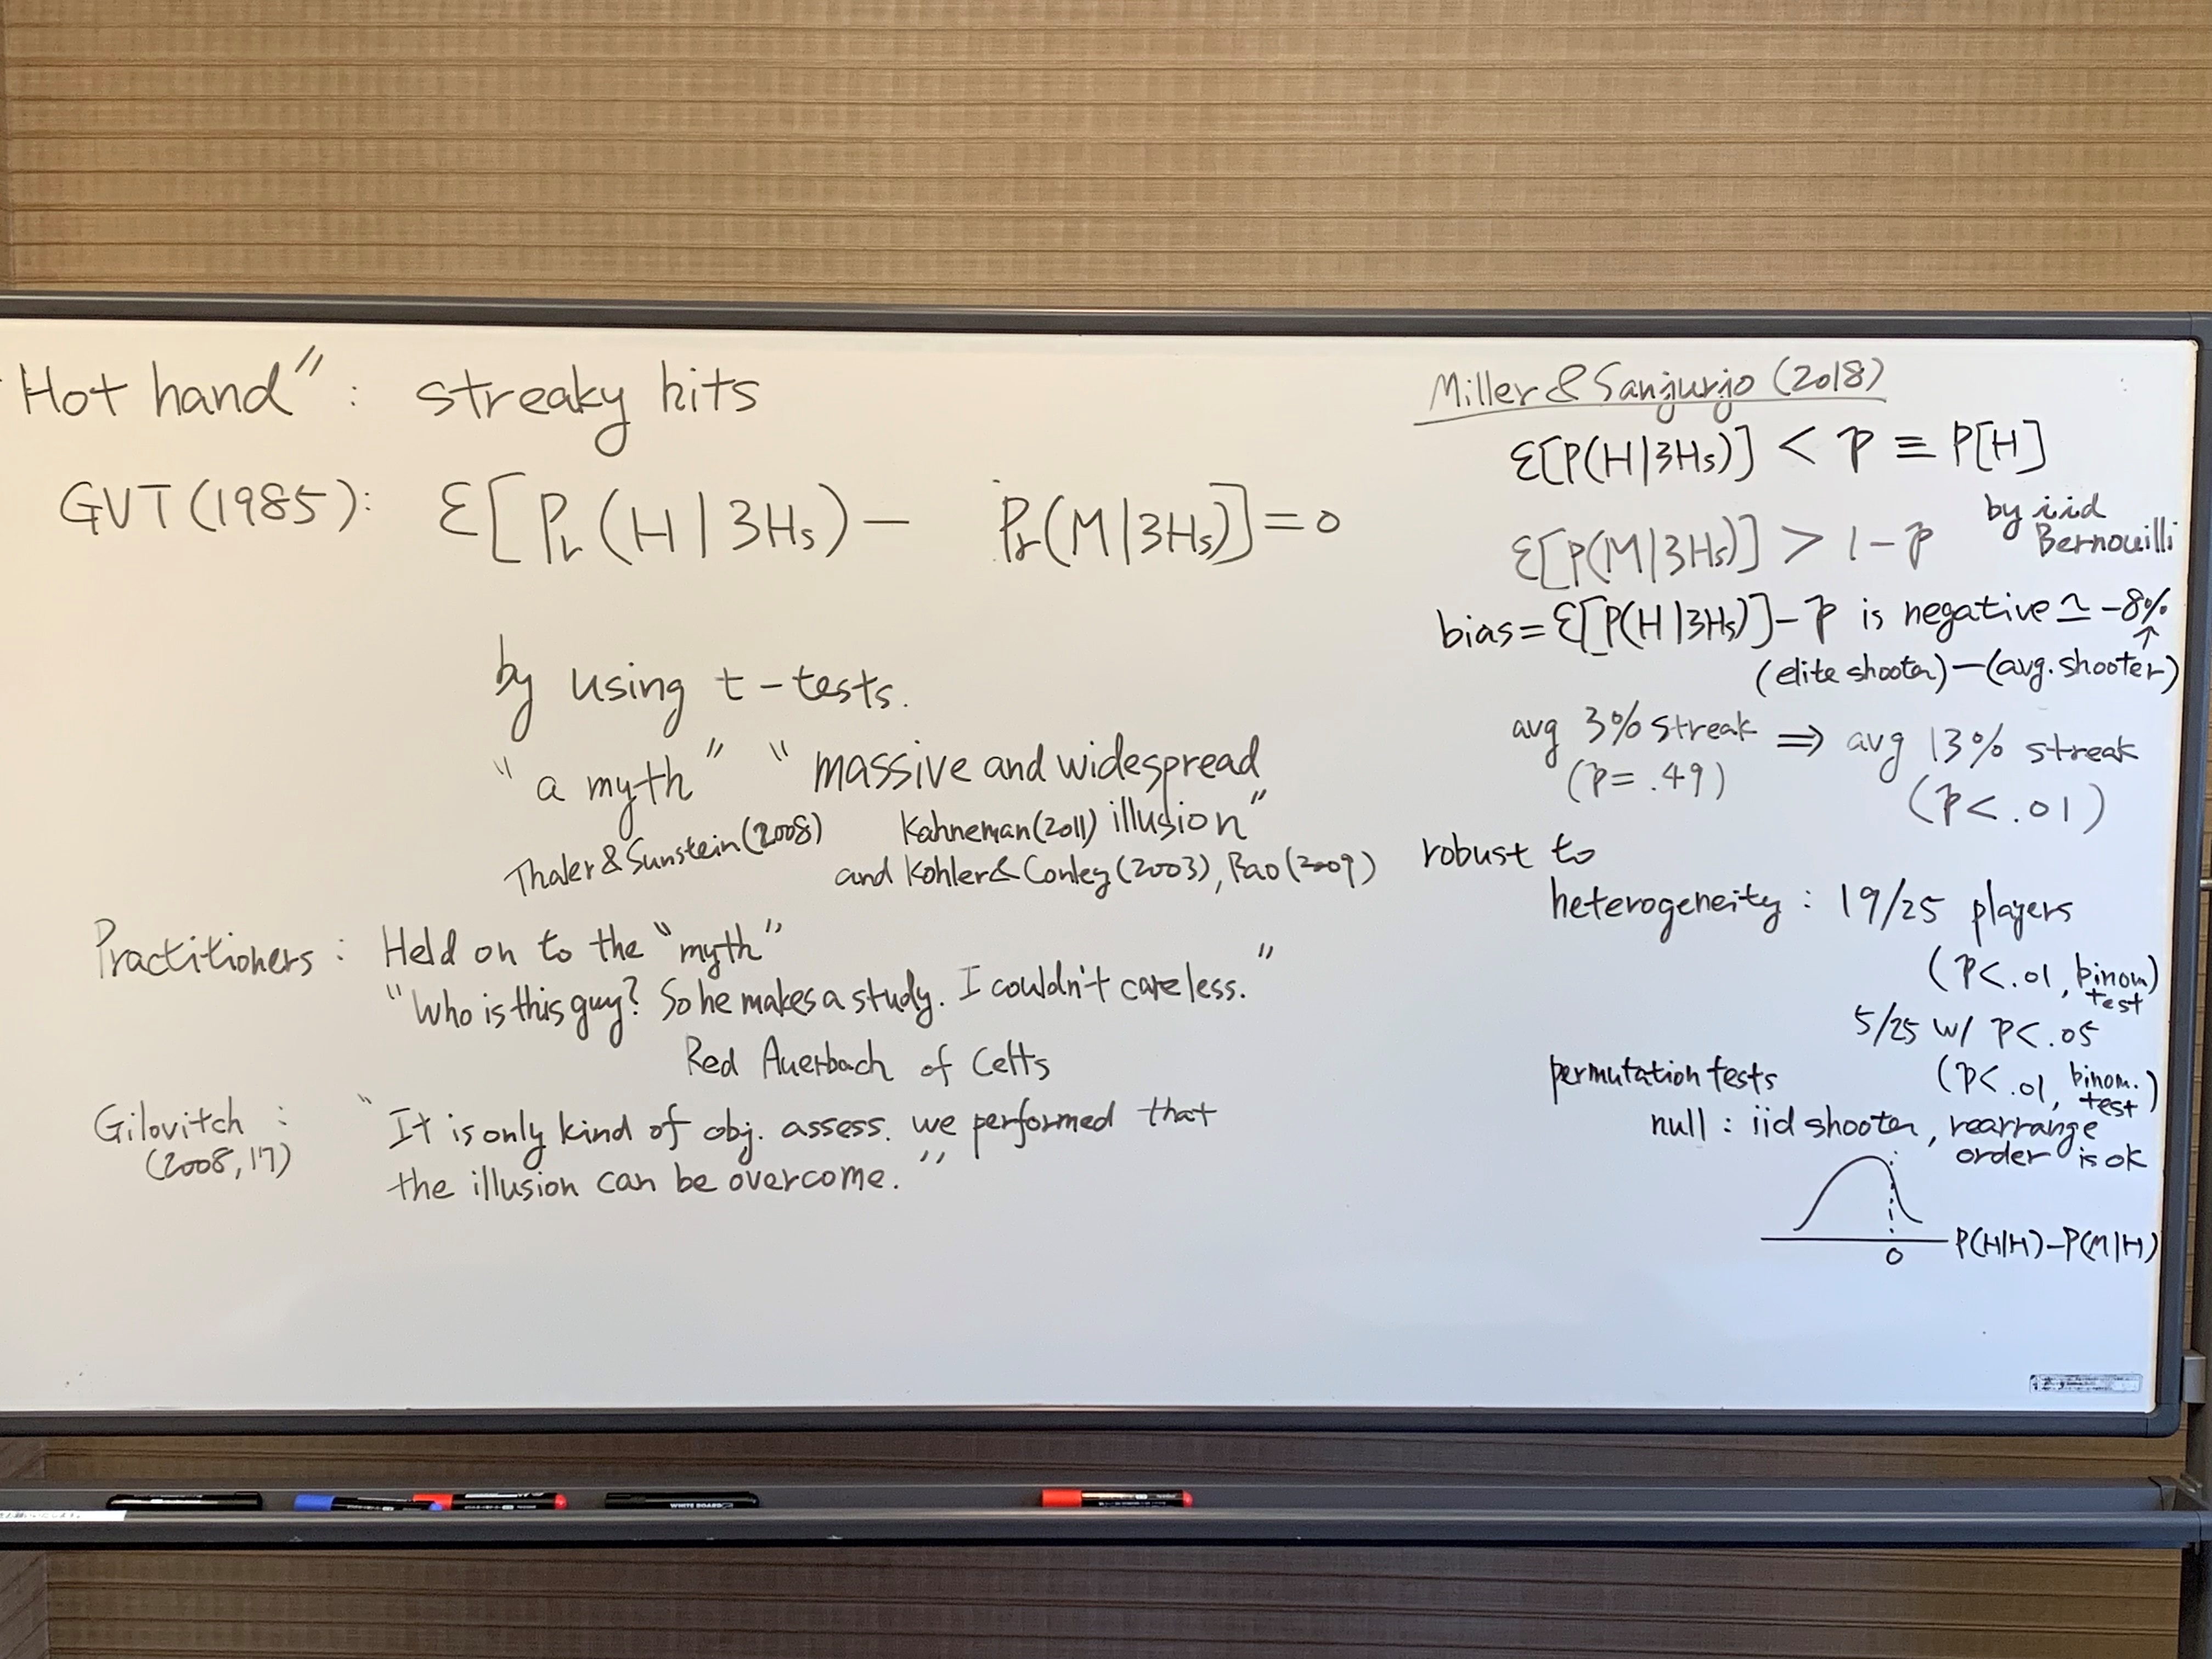 Hot hand" : streaky hits
GVT (1985): Ɛ[Pr(H|3Hs) - Pr(M|3Hs)] = 0
by using t-tests.
"a myth" "massive and widespread
Thaler & Sunstein (2008) Kahneman (2011) illusion"
and Kohler & Conley (2003), Rao (2009)
Practitioners : Held on to the "myth"
"Who is this guy? So he makes a study. I couldn't care less."
Red Auerbach of Celts
Gilovitch : "It is only kind of obj. assess. we performed that
(2008, 17) the illusion can be overcome."
Miller & Sanjurjo (2018)
Ɛ[P(H|3Hs)] < p ≡ P[H]
by iid
Bernouilli
Ɛ[P(M|3Hs)] > 1-p
bias = Ɛ[P(H|3Hs)] - p is negative ≃ -8%
↑
(elite shooter) - (avg. shooter)
avg 3% streak ⇒ avg 13% streak
(p = .49) (p < .01)
robust to
heterogeneity : 19/25 players
(p < .01, binom
test)
5/25 w/ p < .05
permutation tests (p < .01, binom.
test)
null : iid shooter, rearrange
order is ok
0 P(H|H) - P(M|H)
WHITE BOARD